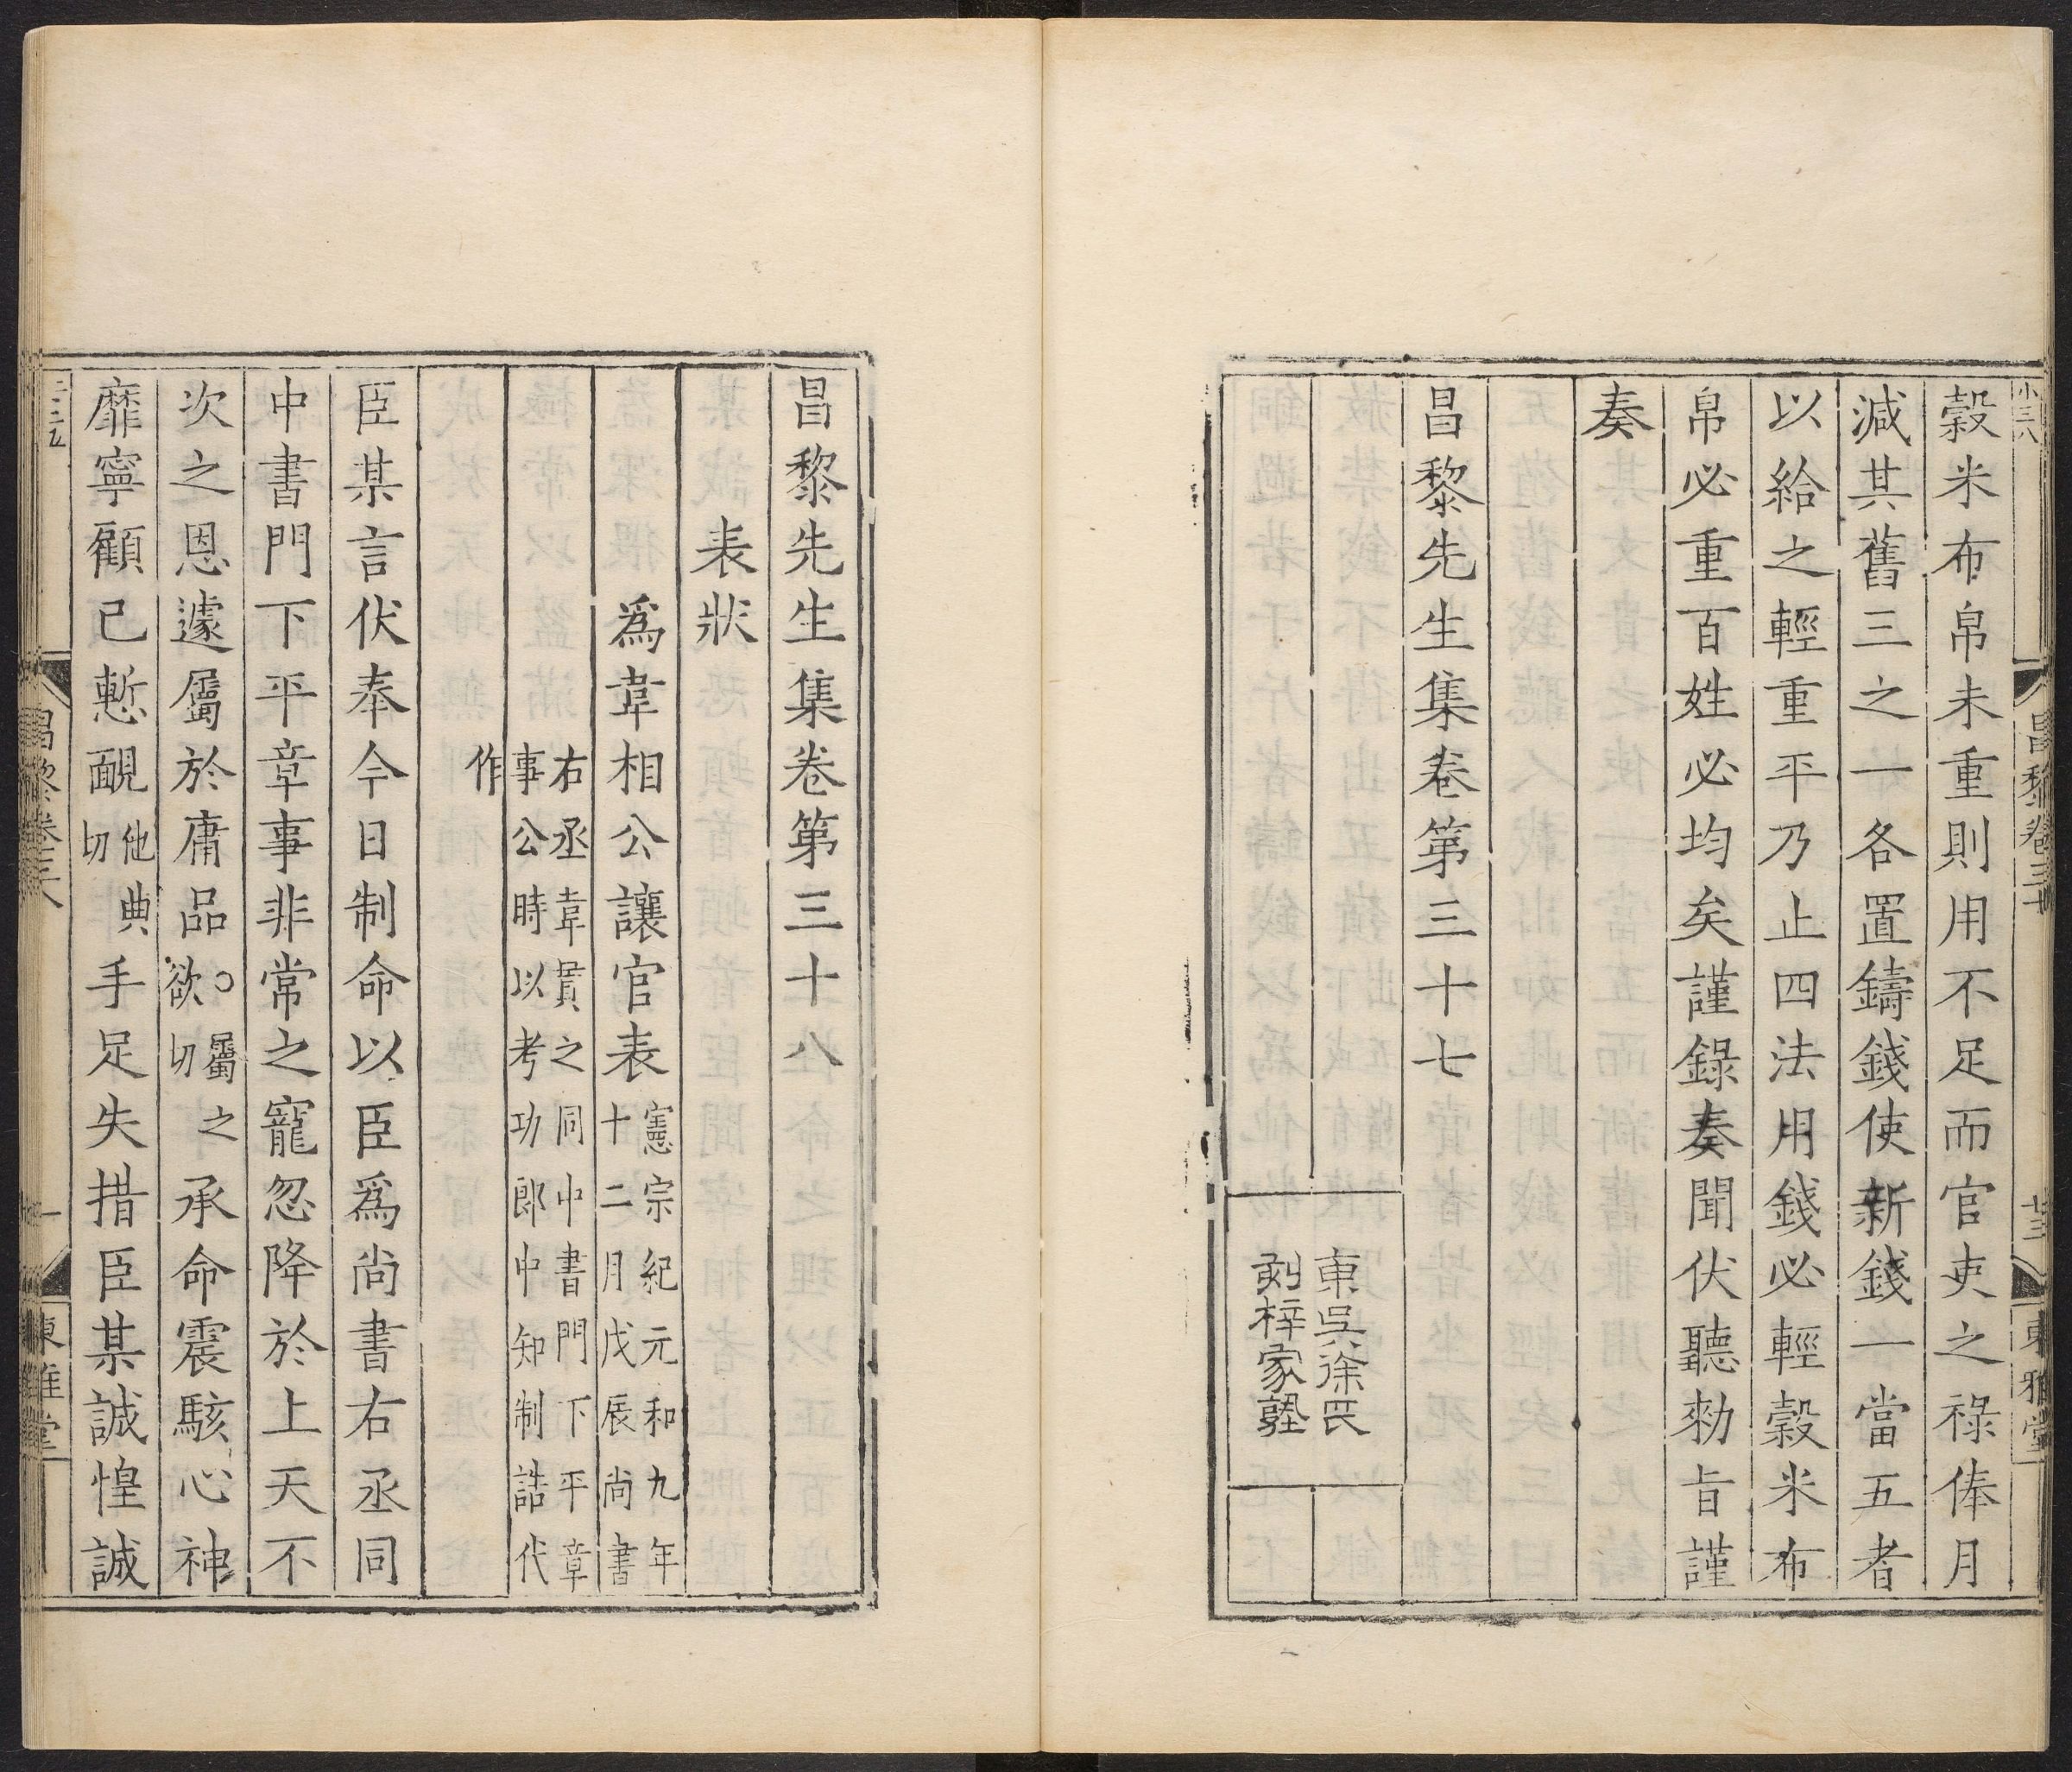 穀米布帛未重則用不足而官吏之祿俸月
減其舊三之一各置鑄錢使新錢一當五者
以給之輕重平乃止四法用錢必輕穀米布
帛必重百姓必均矣謹錄奏聞伏聽勑旨謹
奏
昌黎先生集卷第三十七
東吳徐氏
刻梓家塾
昌黎先生集卷第三十八
表狀
爲韋相公讓官表
憲宗紀元和九年
十二月戊辰尚書
右丞韋貫之同中書門下平章
事公時以考功郎中知制誥代
作
臣某言伏奉今日制命以臣爲尚書右丞同
中書門下平章事非常之寵忽降於上天不
次之恩遽屬於庸品
○屬之
欲切
承命震駭心神
靡寧顧己慙靦
他典
切
手足失措臣某誠惶誠
昌黎卷三十
廿三
東雅堂
昌黎卷三八
一
東雅堂